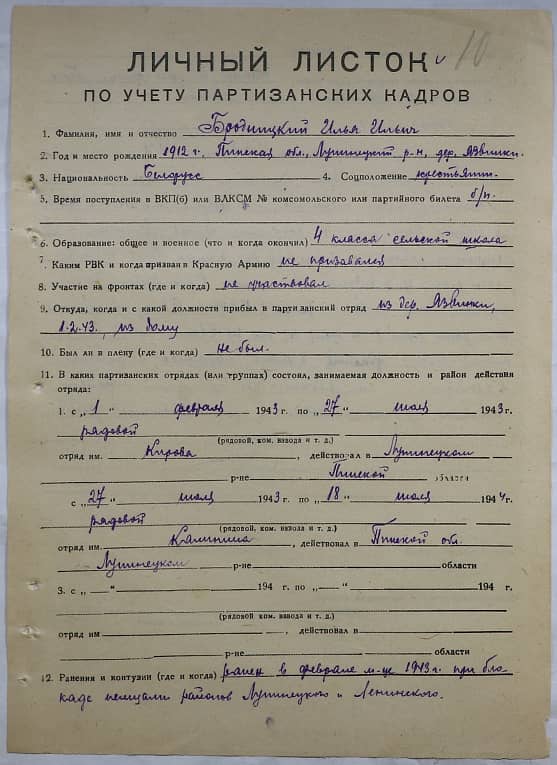 10
ЛИЧНЫЙ ЛИСТОК
ПО УЧЕТУ ПАРТИЗАНСКИХ КАДРОВ
1. Фамилия, имя и отчество Бродницкий Илья Ильич
2. Год и место рождения 1912 г. Пинская обл., Лунинецкий р-н, дер. Язвинки.
3. Национальность Белорусс 4. Соцположение крестьянин
5. Время поступления в ВКП(б) или ВЛКСМ № комсомольского или партийного билета б/п.
6. Образование: общее и военное (что и когда окончил) 4 класса сельской школа
7. Каким РВК и когда призван в Красную Армию не призывался
8. Участие на фронтах (где и когда) не участвовал
9. Откуда, когда и с какой должности прибыл в партизанский отряд из дер. Язвинки,
1.2.43, из дому
10. Был ли в плену (где и когда) не был.
11. В каких партизанских отрядах (или группах) состоял, занимаемая должность и район действия
отряда:
1. с „1“ февраля 1943 г. по „27“ июля 1943 г.
рядовой
(рядовой, ком. взвода и т. д.)
отряд им. Кирова, действовал в Лунинецком
р-не Пинской области
с „27“ июля 1943 г. по „18“ июля 1944 г.
рядовой
(рядовой, ком. взвода и т. д.)
отряд им. Калинина, действовал в Пинской обл.
Лунинецком р-не области
3. с „ “ 194 г. по „ “ 194 г.
(рядовой, ком. взвода и т. д.)
отряд им , действовал в
р-не области
12. Ранения и контузии (где и когда) ранен в феврале м-це 1943 г. при бло
каде немцами районов Лунинецкого и Ленинского.